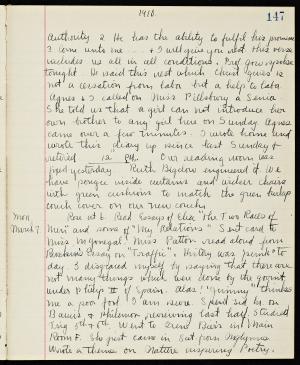 1910. 147
Authority 2 He has the ability to fulfil his promises
3 Come unto me ... & I will give you rest this verse
includes us all in all conditions. Prof. spoke
tonight. He said this rest which Christ gives is
not a cessation from labor but a help to labor
Agnes & I called on Miss Pillsbury a Senior
She told us that a girl can not introduce her
own brother to any girl here on Sunday Agnes
came over a few minutes. I wrote home and
wrote this diary up since last Sunday &
retired 12 PM. Our reading room was
fixed yesterday Ruth Bigelow engineered it We
have pongee inside curtains and wicker chairs
with green cushions to match the green burlap
couch cover on our new couch.
Mon, Rose at 6. Read Essays of Elia "The Two Races of
March 7. Men" and some of "My Relations" Sent card to
Miss McGonegal! Miss Patton read aloud from
Ruskin's Essay on "Traffic". History was "punk" to
day. I disgraced myself by saying that there are
not many things which were done by the gov'mt
under Philip II of Spain. Alas! "Jimmy" thinks
me a poor fool I am sure. Spent 3rd hr on
Baucis & Philemon reviewing last half. Studied
Trig 5th & 6th Went to Irene Bier's in Main
Room F. She just came in but from Neglynn's
Wrote a theme on Nature inspiring Poetry.